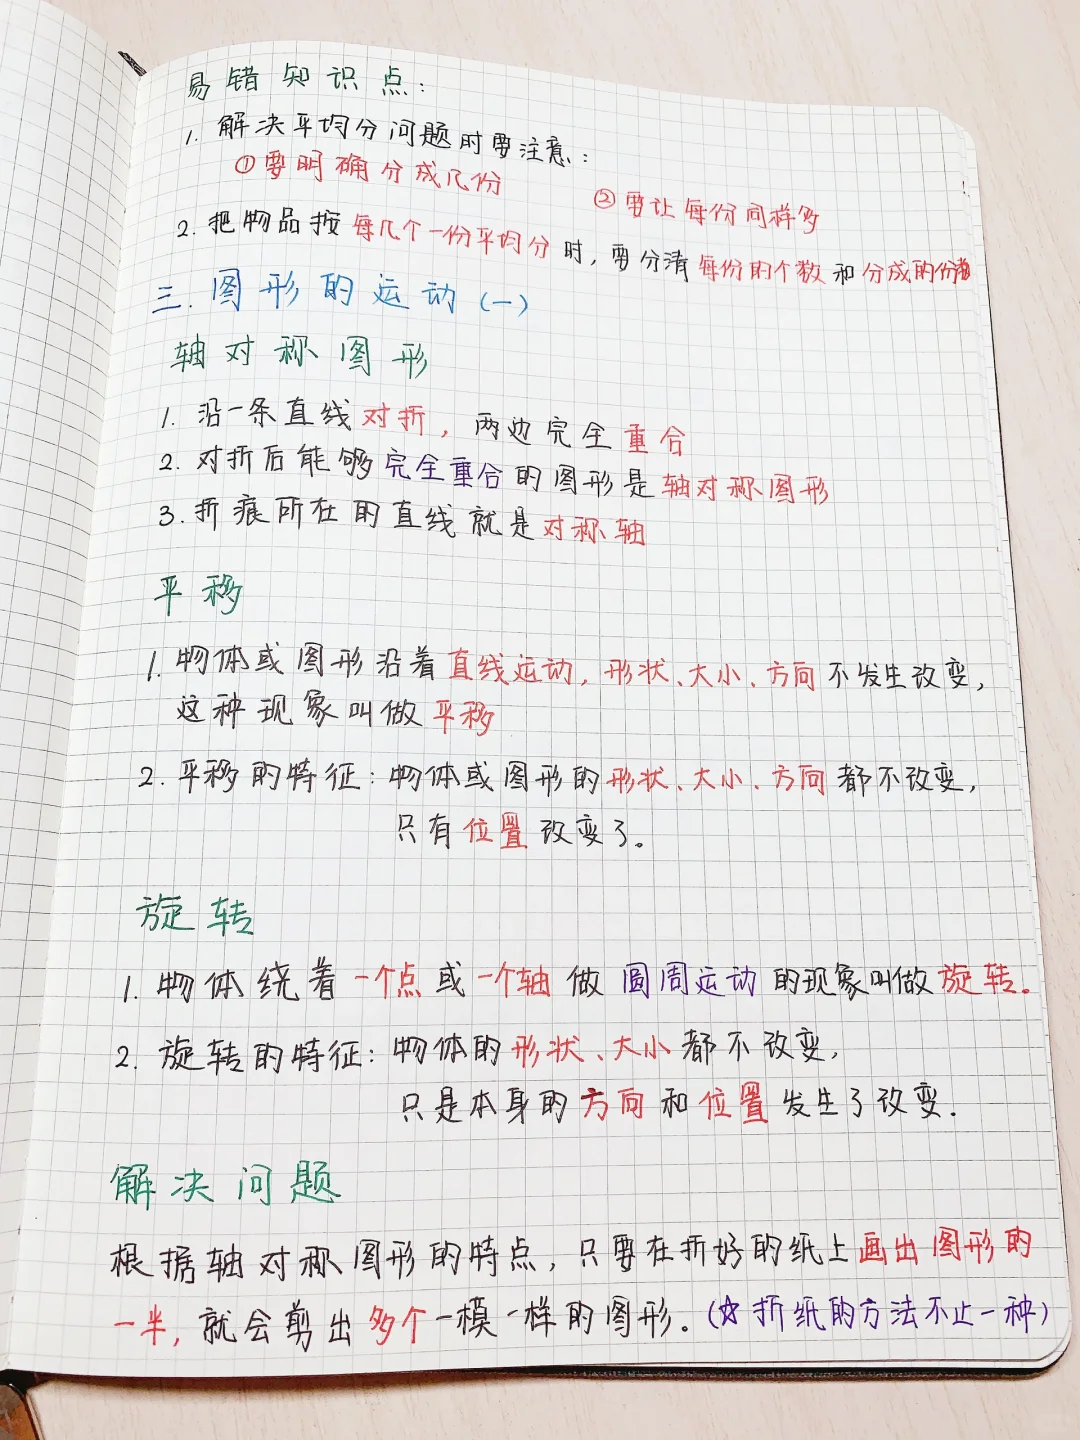 易错知识点:
1. 解决平均分问题时要注意:
①要明确分成几份 ②要让每份同样多
2. 把物品按每几个一份平均分时,要分清每份的个数和分成的份数
三. 图形的运动(一)
轴对称图形
1. 沿一条直线对折, 两边完全重合
2. 对折后能够完全重合的图形是轴对称图形
3. 折痕所在的直线就是对称轴
平移
1. 物体或图形沿着直线运动, 形状、大小、方向不发生改变,
这种现象叫做平移
2. 平移的特征: 物体或图形的形状、大小、方向都不改变,
只有位置改变了。
旋转
1. 物体绕着一个点或一个轴做圆周运动的现象叫做旋转。
2. 旋转的特征: 物体的形状、大小都不改变,
只是本身的方向和位置发生了改变.
解决问题
根据轴对称图形的特点, 只要在折好的纸上画出图形的
一半, 就会剪出多个一模一样的图形。(☆折纸的方法不止一种)